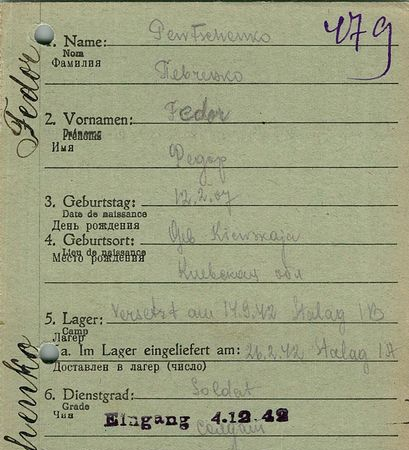 479
Fedor
1. Name: Pewtschenko
Nom
Фамилия
Певченко
2. Vornamen: Fedor
Prénoms
Имя
Федор
3. Geburtstag: 12.2.07
Date de naissance
День рождения
4. Geburtsort: Geb Kiewskaja
Lieu de naissance
Место рождения
Киевская обл
5. Lager: Versetzt am 17.9.42 Stalag IB
Camp
Лагерь
a. Im Lager eingeliefert am: 26.2.42 Stalag IA
Доставлен в лагерь (число)
6. Dienstgrad: Soldat
Grade
Чин
Eingang 4.12.42
henko